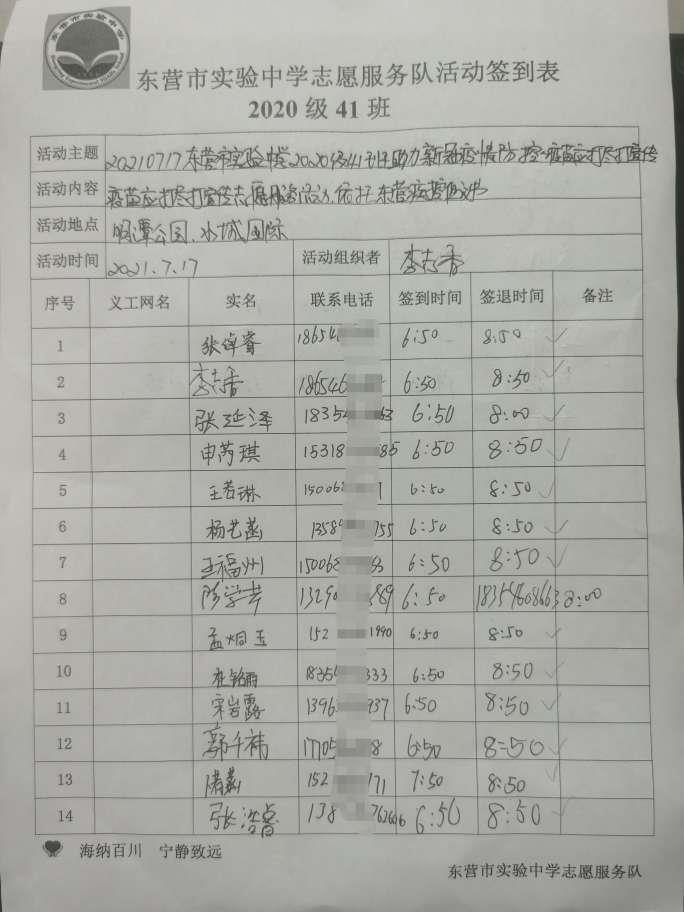 东营市实验中学
东营市实验中学志愿服务队活动签到表
2020级41班
活动主题 20210717东营市实验中学2020级41班助力新冠疫情防控·疫苗应打尽打宣传
活动内容 疫苗应打尽打宣传志愿服务活动,依托东营疫
活动地点 明潭公园、水城国际
活动时间 2021.7.17 活动组织者 李志香
序号 义工网名 实名 联系电话 签到时间 签退时间 备注
1 张倬睿 18654 6:50 8:50
2 李志香 186546 6:50 8:50
3 张延泽 1835 63 6:50 8:00
4 申芮琪 15318 85 6:50 8:50
5 王若琳 15006 1 6:50 8:50
6 杨艺菡 1358 755 6:50 8:50
7 王福州 15006 63 6:50 8:50
8 陈学芹 1329 89 6:50 18354608663 8:00
9 孟炯玉 152 1990 6:50 8:50
10 杜铭雨 1835 333 6:50 8:50
11 宋岩露 1396 937 6:50 8:50
12 郭千祎 17705 8 6:50 8:50
13 152 171 7:50 8:50
14 张浩睿 138 6:50 8:50
海纳百川 宁静致远
东营市实验中学志愿服务队